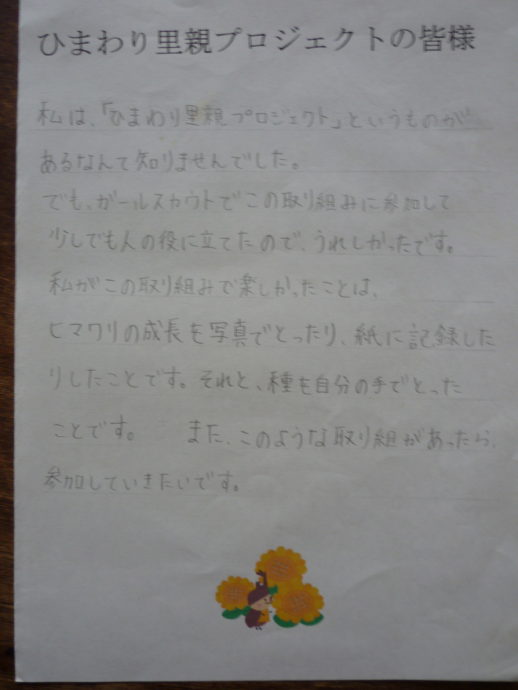 ひまわり里親プロジェクトの皆様
私は、「ひまわり里親プロジェクト」というものが
あるなんて知りませんでした。
でも、ガールスカウトでこの取り組みに参加して
少しでも人の役に立てたので、うれしかったです。
私がこの取り組みで楽しかったことは、
ヒマワリの成長を写真でとったり、紙に記録した
りしたことです。それと、種を自分の手でとった
ことです。 また、このような取り組があったら、
参加していきたいです。